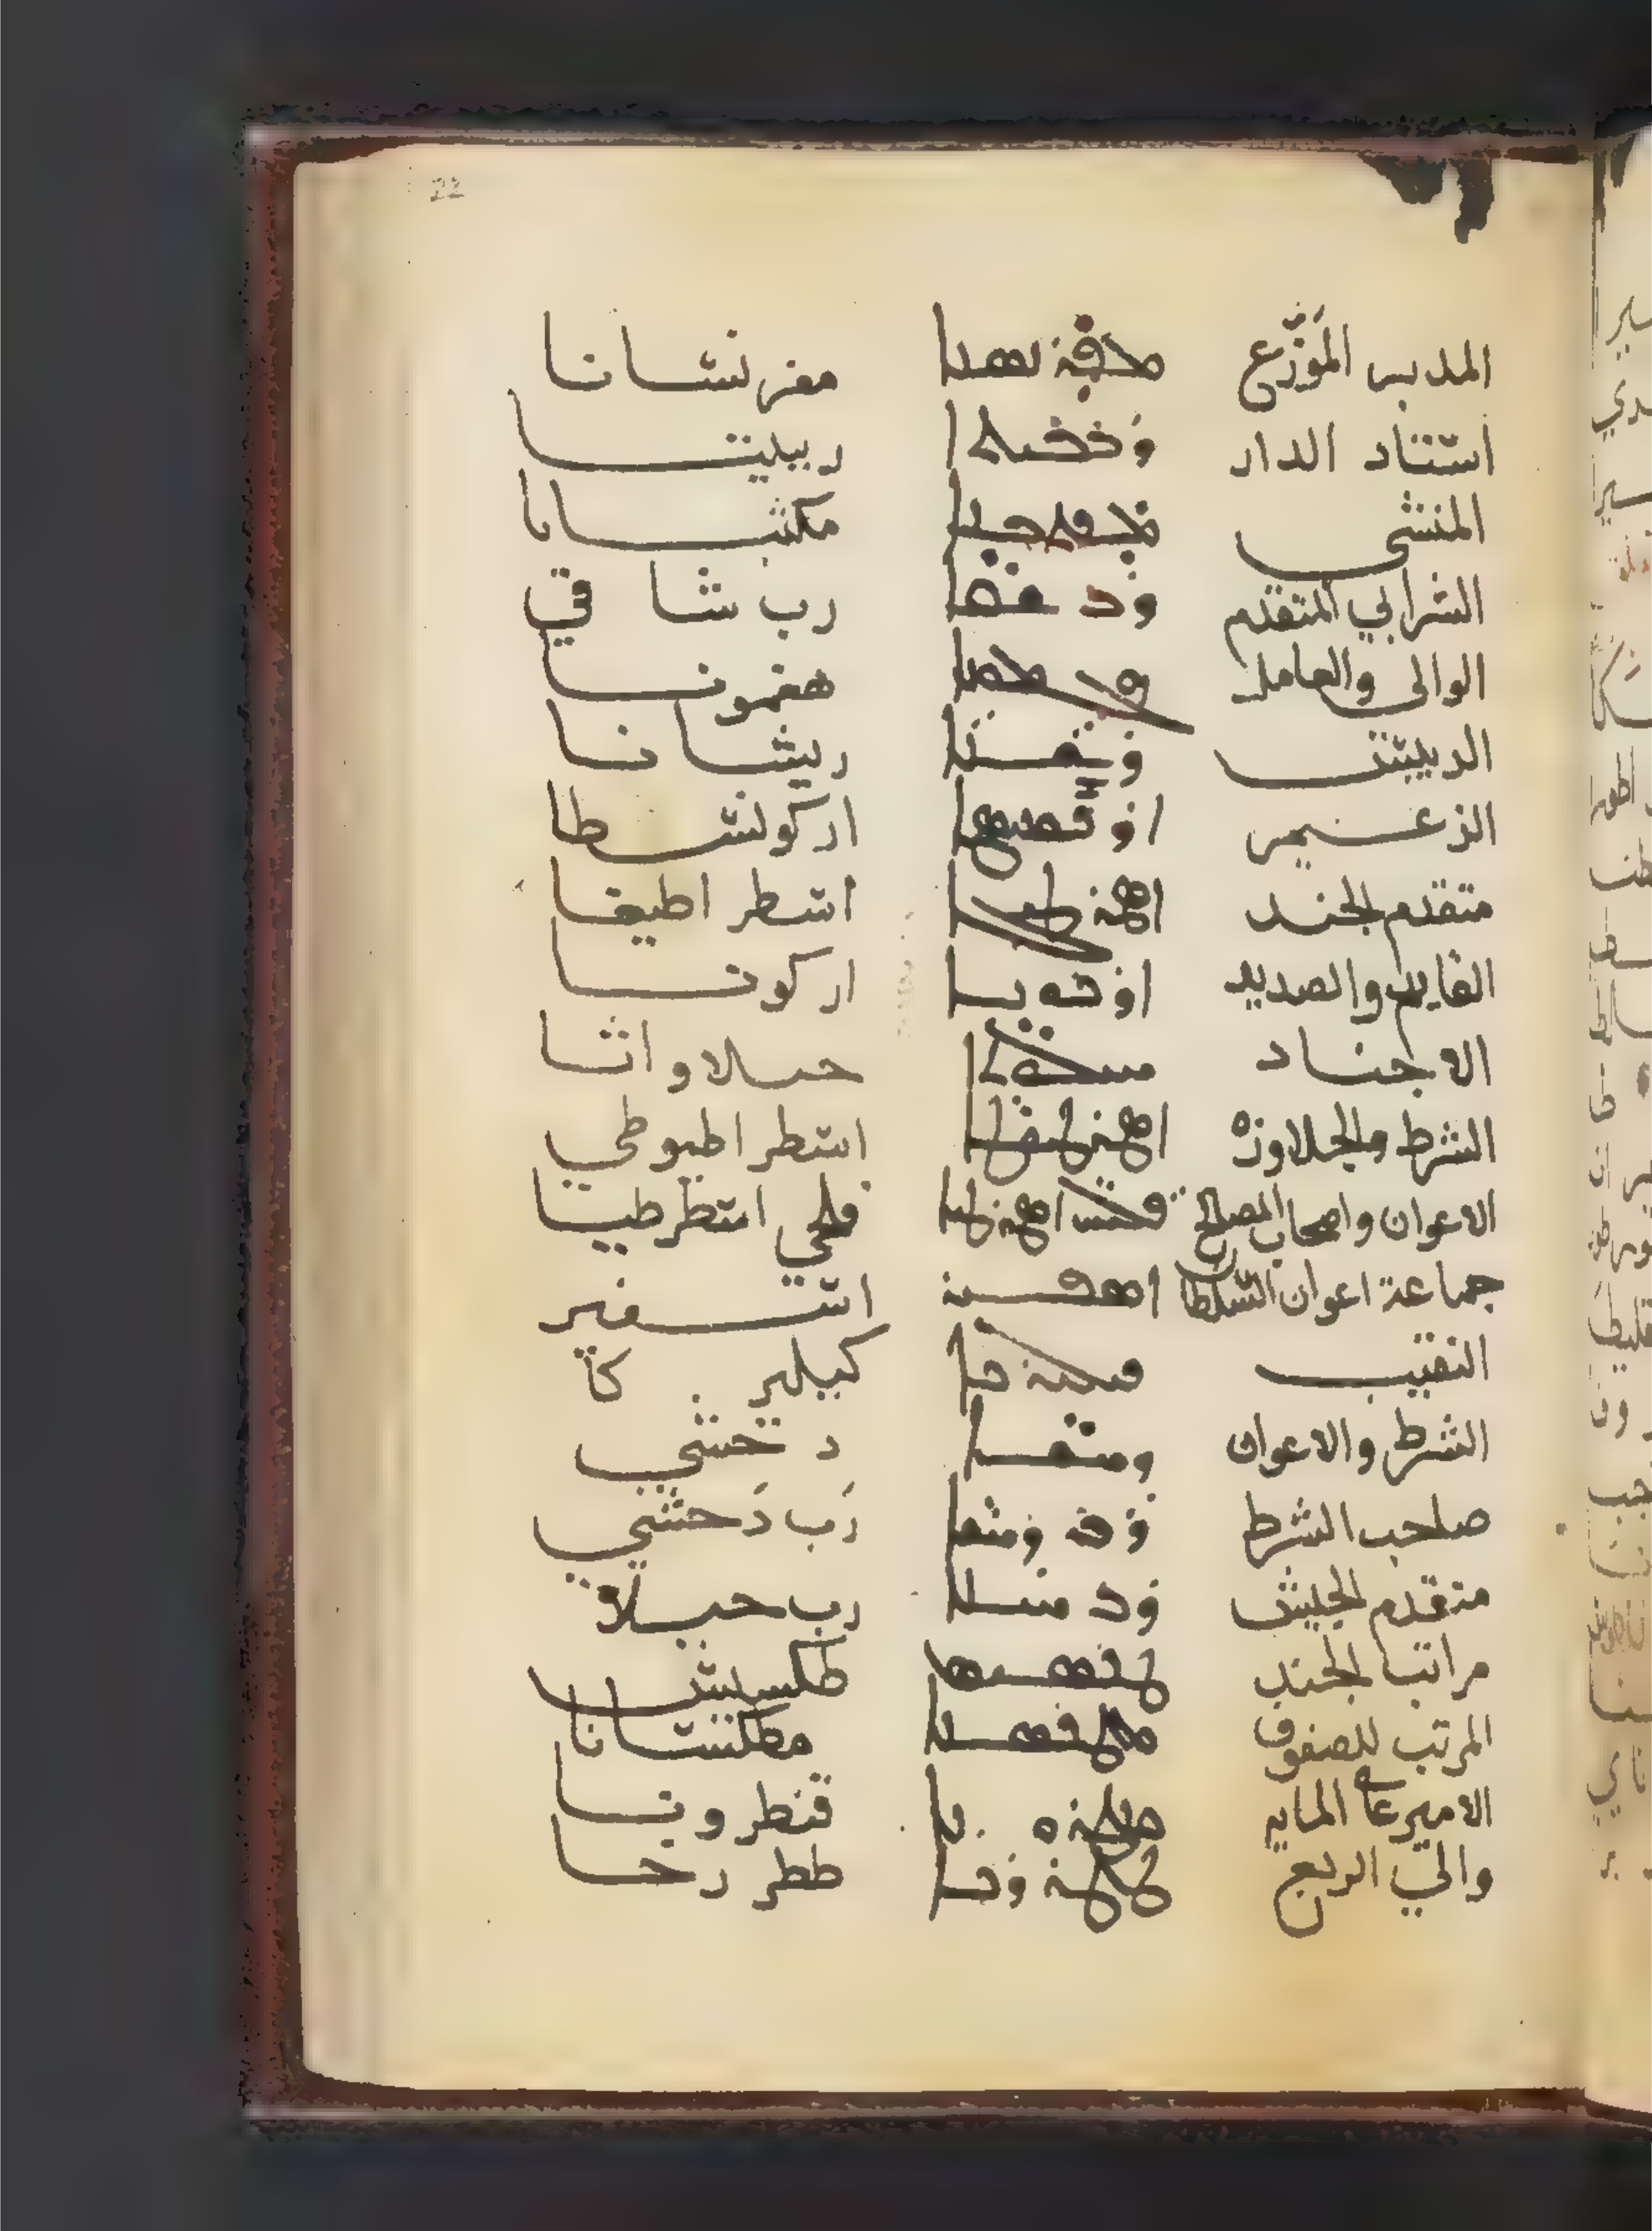 22
المدبر الموَزّع ܡܦܪܢܣܢܐ مفرنشانا
استناد الدار ܪܒܒܝܬܐ رببيتا
المنشي ܡܟܬܒܢܐ مكتبانا
الشرابي المتقدم ܪܒ ܫܩܐ رب شاقي
الوالي والعامل هغمونا
الدبيتى ܪܝܫܢܐ ريشانا
الزعيم اركونسطا
متقدم الجند اسطر اطيغا
القايد والصديد ܐܪܟܘܢܐ اركونا
الاجناد ܚܝܠܘܬܐ حيلاواثا
الشرط والجلاوزه اسطر اطيوطي
الاعوان واصحاب المصالح فلحي اسطرطيا
جماعة اعوان السلطان ܐܣܦܝܪ اسفير
النقيب كيلير كا
الشرط والاعوان ܕܚܫܐ دحشي
صاحب الشرط ܪܒ ܕܚܫܐ رَب دَحشي
متقدم الجيش ܪܒ ܚܝܠܐ رب حيلا
مراتب الجند ܛܟܣܝܣ طكسيس
المرتب للصفوف ܡܛܟܣܢܐ مطكسانا
الامير على المايه ܩܢܛܪܘܢܐ قنطرونا
والي الربع ܛܛܪܪܟܐ ططررخا